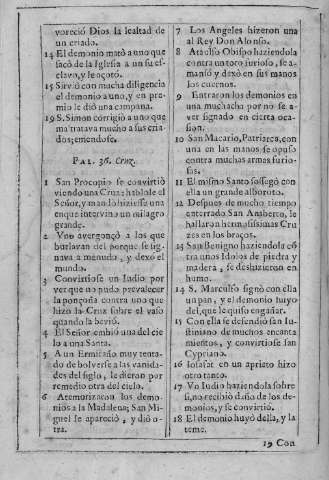 voreciò Dios la lealtad de
un criado.
14 El demonio matò a uno que
sacò de la Iglesia a un su es-
clavo, y le açotò.
15 Sirviò con mucha diligencia
el demonio a uno, y en pre-
mio le diò una campana.
19 S. Simon corrigiò a uno que
maltratava mucho a sus cria-
dos; emiendose.
PAL. 36. Cruz.
1 San Procopio se convirtiò
viendo una Cruz: hablole el
Señor, y mandò hiziesse una
en que intervino un milagro
grande.
2 Uno avergonçò a los que
burlavan del porque se sig-
nava a menudo, y dexò el
mundo.
3 Convirtiose un Iudio por
ver que no pudo prevalecer
la ponçoña contra uno que
hizo la Cruz sobre el vaso
quando la beviò.
4 El Señor embiò una del cie-
lo a una Santa.
5 A un Ermitaño muy tenta-
do de bolverse a las vanida-
des del siglo, le dieron por
remedio otra del cielo.
6 Atemorizaron los demo-
nios a la Madalena; San Mi-
guel le apareciò, y diò o-
tra.
7 Los Angeles hizeron una
al Rey Don Alonso.
8 Ataulfo Obispo haziendola
contra un toro furioso, se a-
mansò y dexò en sus manos
los cuernos.
9 Entraron los demonios en
una muchacha por no se a-
ver signado en cierta oca-
sion.
10 San Macario, Patriarca, con
una en las manos se opuso
contra muchas armas furio-
sas.
11 El mismo Santo sossegò con
ella un grande alboroto.
12 Despues de mucho tiempo
enterrado San Anaberto, le
hallaron hermosissimas Cru
zes en los braços.
13 San Benigno haziendola cō
tra unos Idolos de piedra y
madera, se deshizieron en
humo.
14 S. Marculfo signò con ella
un pan, y el demonio huyò
del, que le quiso engañar.
15 Con ella se defendiò san Iu-
stiniano de muchos encanta
mientos, y convirtiose san
Cypriano.
16 Iosafat en un aprieto hizo
otro tanto.
17 Vn Iudio haziendola sobre
si, no recibiò daño de los de-
monios, y se convirtiò.
18 El demonio huyò della, y la
teme.
19 Con